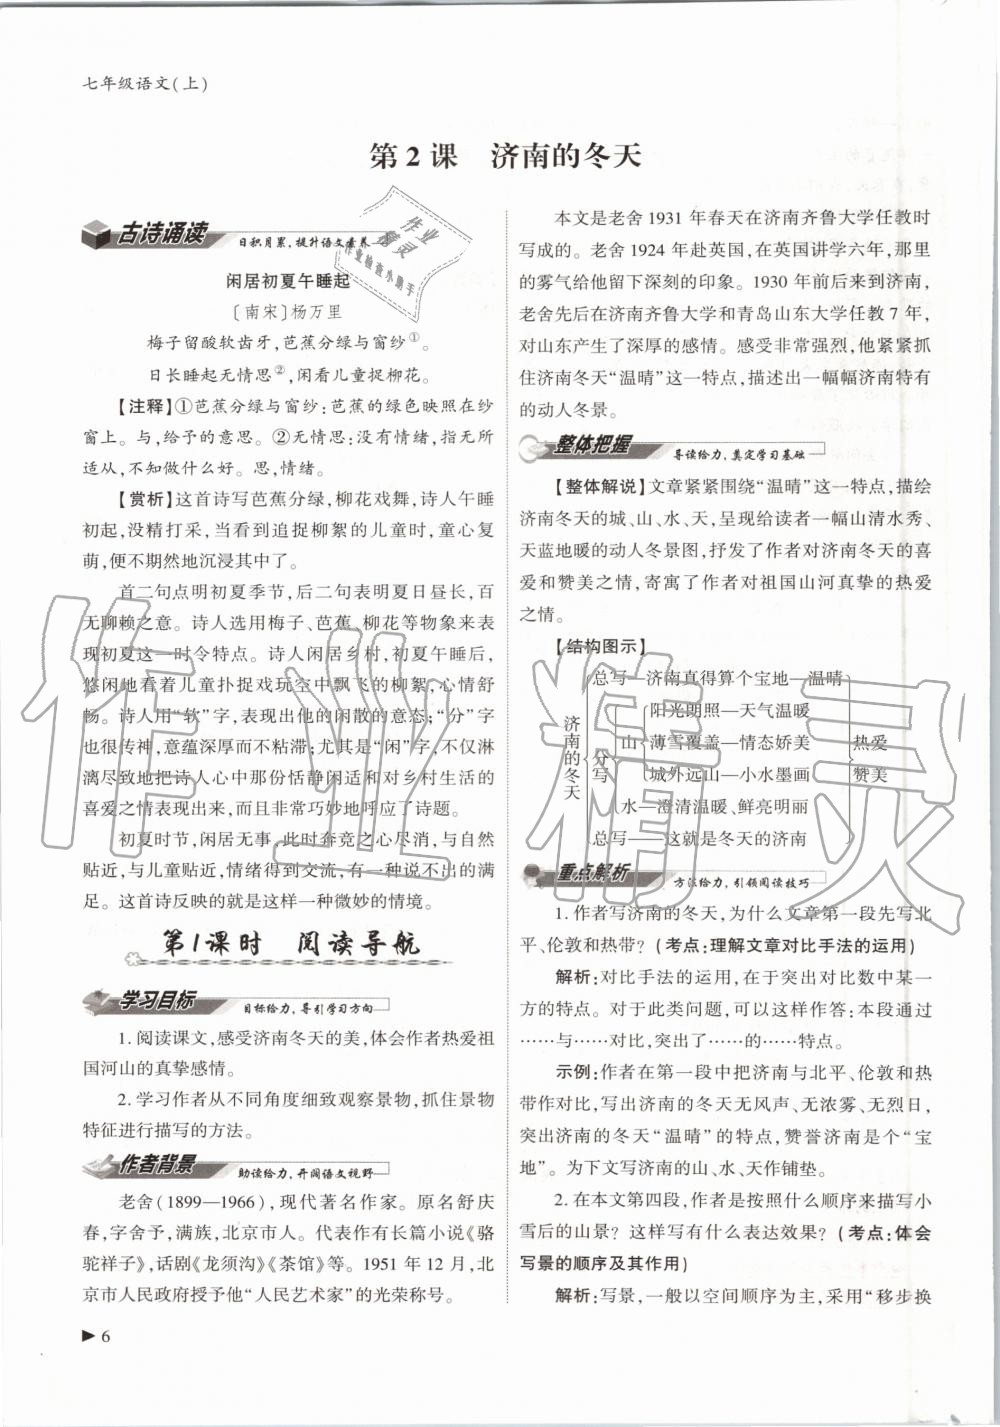 七年级语文(上)
第2课 济南的冬天
古诗诵读 日积月累,提升语文素养
闲居初夏午睡起
〔南宋〕杨万里
梅子留酸软齿牙,芭蕉分绿与窗纱①。
日长睡起无情思②,闲看儿童捉柳花。
【注释】①芭蕉分绿与窗纱:芭蕉的绿色映照在纱
窗上。与,给予的意思。②无情思:没有情绪,指无所
适从,不知做什么好。思,情绪。
【赏析】这首诗写芭蕉分绿,柳花戏舞,诗人午睡
初起,没精打采,当看到追捉柳絮的儿童时,童心复
萌,便不期然地沉浸其中了。
首二句点明初夏季节,后二句表明夏日昼长,百
无聊赖之意。诗人选用梅子、芭蕉、柳花等物象来表
现初夏这一时令特点。诗人闲居乡村,初夏午睡后,
悠闲地看着儿童扑捉戏玩空中飘飞的柳絮,心情舒
畅。诗人用“软”字,表现出他的闲散的意态;“分”字
也很传神,意蕴深厚而不粘滞;尤其是“闲”字,不仅淋
漓尽致地把诗人心中那份恬静闲适和对乡村生活的
喜爱之情表现出来,而且非常巧妙地呼应了诗题。
初夏时节,闲居无事,此时奔竞之心尽消,与自然
贴近,与儿童贴近,情绪得到交流,有一种说不出的满
足。这首诗反映的就是这样一种微妙的情境。
第1课时 阅读导航
学习目标 目标给力,导引学习方向
1. 阅读课文,感受济南冬天的美,体会作者热爱祖
国河山的真挚感情。
2. 学习作者从不同角度细致观察景物,抓住景物
特征进行描写的方法。
作者背景 助读给力,开阔语文视野
老舍(1899—1966),现代著名作家。原名舒庆
春,字舍予,满族,北京市人。代表作有长篇小说《骆
驼祥子》,话剧《龙须沟》《茶馆》等。1951年12月,北
京市人民政府授予他“人民艺术家”的光荣称号。
▶6
本文是老舍1931年春天在济南齐鲁大学任教时
写成的。老舍1924年赴英国,在英国讲学六年,那里
的雾气给他留下深刻的印象。1930年前后来到济南,
老舍先后在济南齐鲁大学和青岛山东大学任教7年,
对山东产生了深厚的感情。感受非常强烈,他紧紧抓
住济南冬天“温晴”这一特点,描述出一幅幅济南特有
的动人冬景。
整体把握 导读给力,奠定学习基础
【整体解说】文章紧紧围绕“温晴”这一特点,描绘
济南冬天的城、山、水、天,呈现给读者一幅山清水秀、
天蓝地暖的动人冬景图,抒发了作者对济南冬天的喜
爱和赞美之情,寄寓了作者对祖国山河真挚的热爱
之情。
【结构图示】
济南的冬天
总写—济南真得算个宝地—温晴
分写
山
阳光朗照—天气温暖
薄雪覆盖—情态娇美
城外远山—小水墨画
水—澄清温暖、鲜亮明丽
总写——这就是冬天的济南
热爱
赞美
重点解析 方法给力,引领阅读技巧
1. 作者写济南的冬天,为什么文章第一段先写北
平、伦敦和热带?(考点:理解文章对比手法的运用)
解析:对比手法的运用,在于突出对比数中某一
方的特点。对于此类问题,可以这样作答:本段通过
……与……对比,突出了……的……特点。
示例:作者在第一段中把济南与北平、伦敦和热
带作对比,写出济南的冬天无风声、无浓雾、无烈日,
突出济南的冬天“温晴”的特点,赞誉济南是个“宝
地”。为下文写济南的山、水、天作铺垫。
2. 在本文第四段,作者是按照什么顺序来描写小
雪后的山景?这样写有什么表达效果?(考点:体会
写景的顺序及其作用)
解析:写景,一般以空间顺序为主,采用“移步换
作业精灵
作业
精灵
作业检查小助手